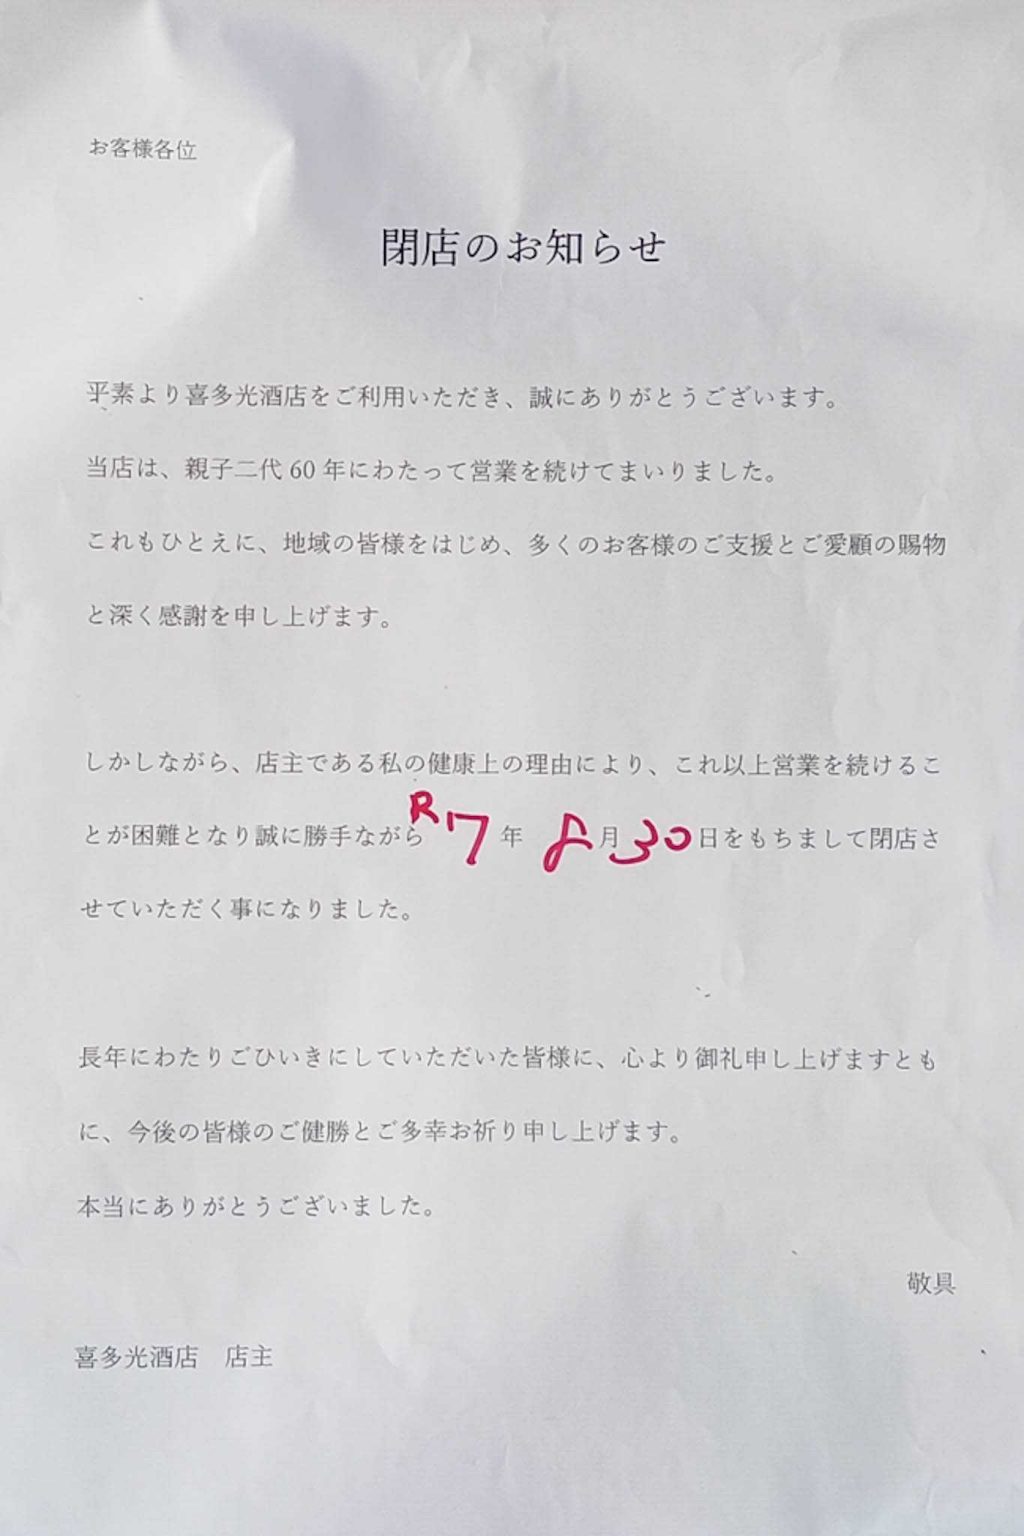 お客様各位
閉店のお知らせ
平素より喜多光酒店をご利用いただき、誠にありがとうございます。
当店は、親子二代 60 年にわたって営業を続けてまいりました。
これもひとえに、地域の皆様をはじめ、多くのお客様のご支援とご愛顧の賜物
と深く感謝を申し上げます。
しかしながら、店主である私の健康上の理由により、これ以上営業を続けるこ
とが困難となり誠に勝手ながら R7 年 8 月 30 日をもちまして閉店さ
せていただく事になりました。
長年にわたりごひいきにしていただいた皆様に、心より御礼申し上げますととも
に、今後の皆様のご健勝とご多幸お祈り申し上げます。
本当にありがとうございました。
敬具
喜多光酒店　店主